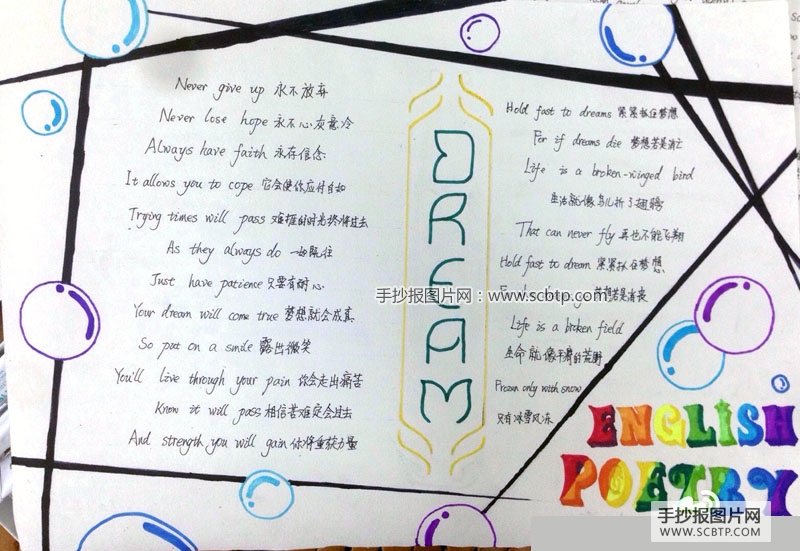 Never give up 永不放弃
Never lose hope 永不心灰意冷
Always have faith 永存信念
It allows you to cope 它会使你应付自如
Trying times will pass 难捱的时光终将过去
As they always do 一如既往
Just have patience 只要有耐心
Your dream will come true 梦想就会成真
So put on a smile 露出微笑
You'll live through your pain 你会走出痛苦
Know it will pass 相信苦难定会过去
And strength you will gain 你将重获力量
DREAM
Hold fast to dreams 紧紧抓住梦想
For if dreams die 梦想若是消亡
Life is a broken-winged bird
生活就像鸟儿折了翅膀
That can never fly 再也不能飞翔
Hold fast to dream 紧紧抓住梦想
For 梦想若是消丧
Life is a broken field
生命就像 的荒野
Frozen only with snow
只有冰雪风冻
手抄报图片网：www.scbtp.com
ENGLISH
POETRY
手抄报图片网
WWW.SCBTP.COM